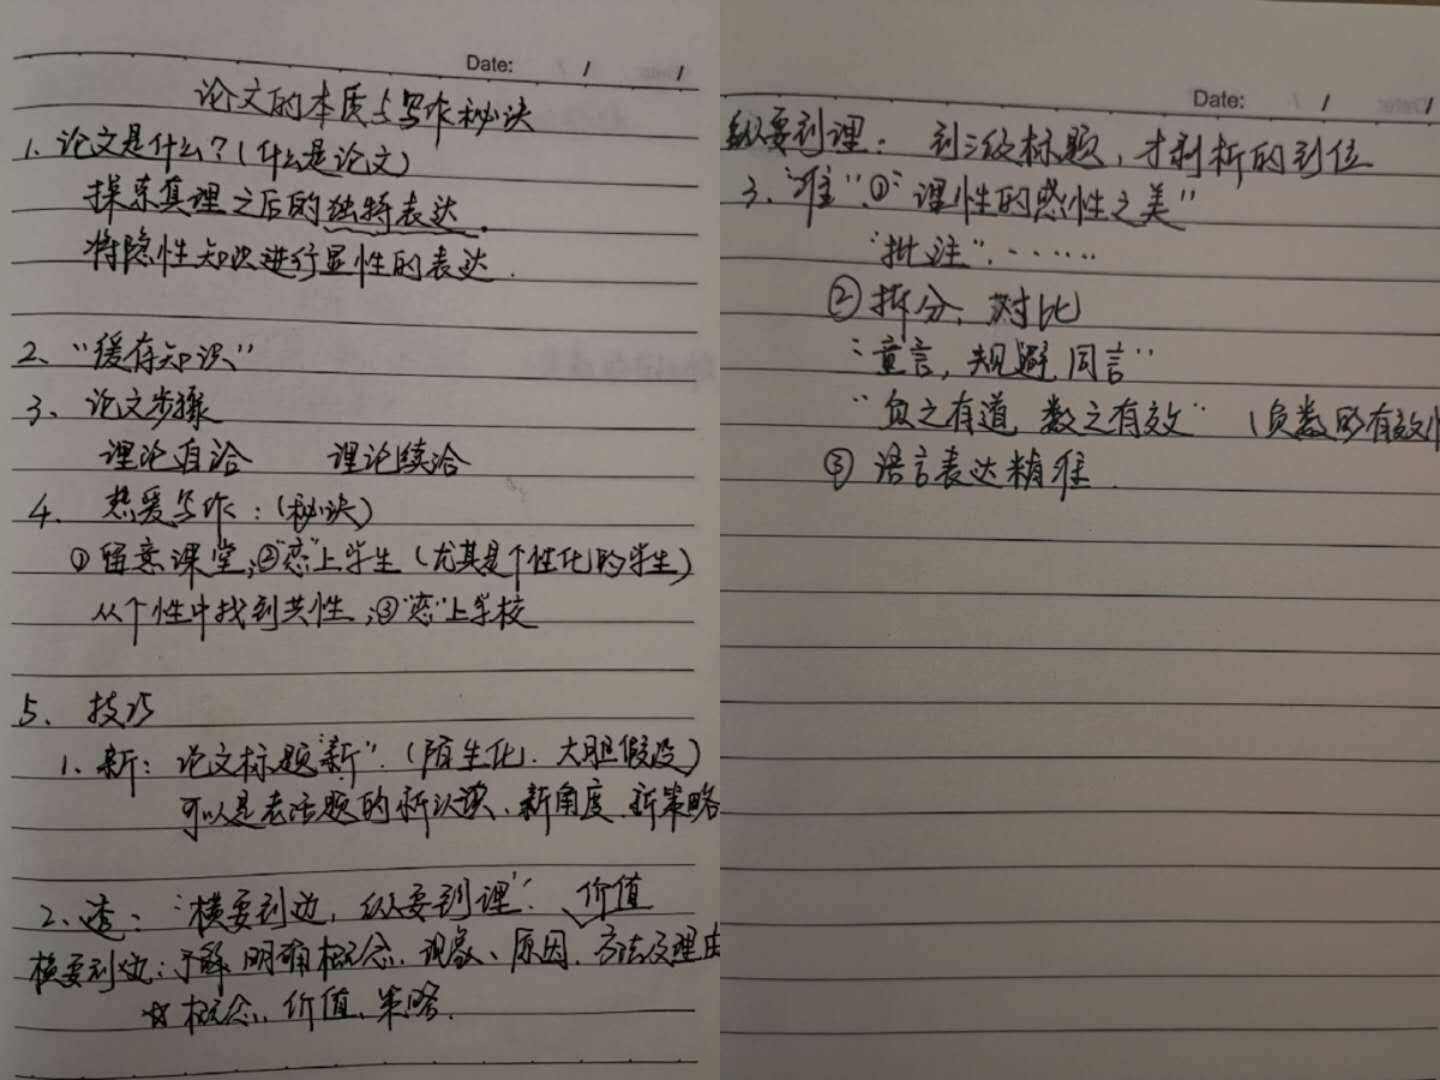 Date: / /
论文的本质与写作秘诀
1. 论文是什么?(什么是论文)
探索真理之后的独特表达.
将隐性知识进行显性的表达.
2、"缓存知识"
3、论文步骤
理论自洽 理论续洽
4. 热爱写作:(秘诀)
①留意课堂;②"恋"上学生(尤其是个性化的学生)
从个性中找到共性;③"恋"上学校
5. 技巧
1. 新: 论文标题"新".(陌生化. 大胆假设)
可以是老话题的新认识、新角度.新策略
2、透:"横要到边,纵要到理". 价值
横要到边:了解明确概念.现象、原因.方法及理由
☆概念、价值、策略.
Date: / /
纵要到理: 到三级标题,才剖析的到位
3."准".①"理性的感性之美"
"批注".……
②拆分、对比
"童言,规避同言"
"负之有道 数之有效" (负数的有效
③语言表达精准.